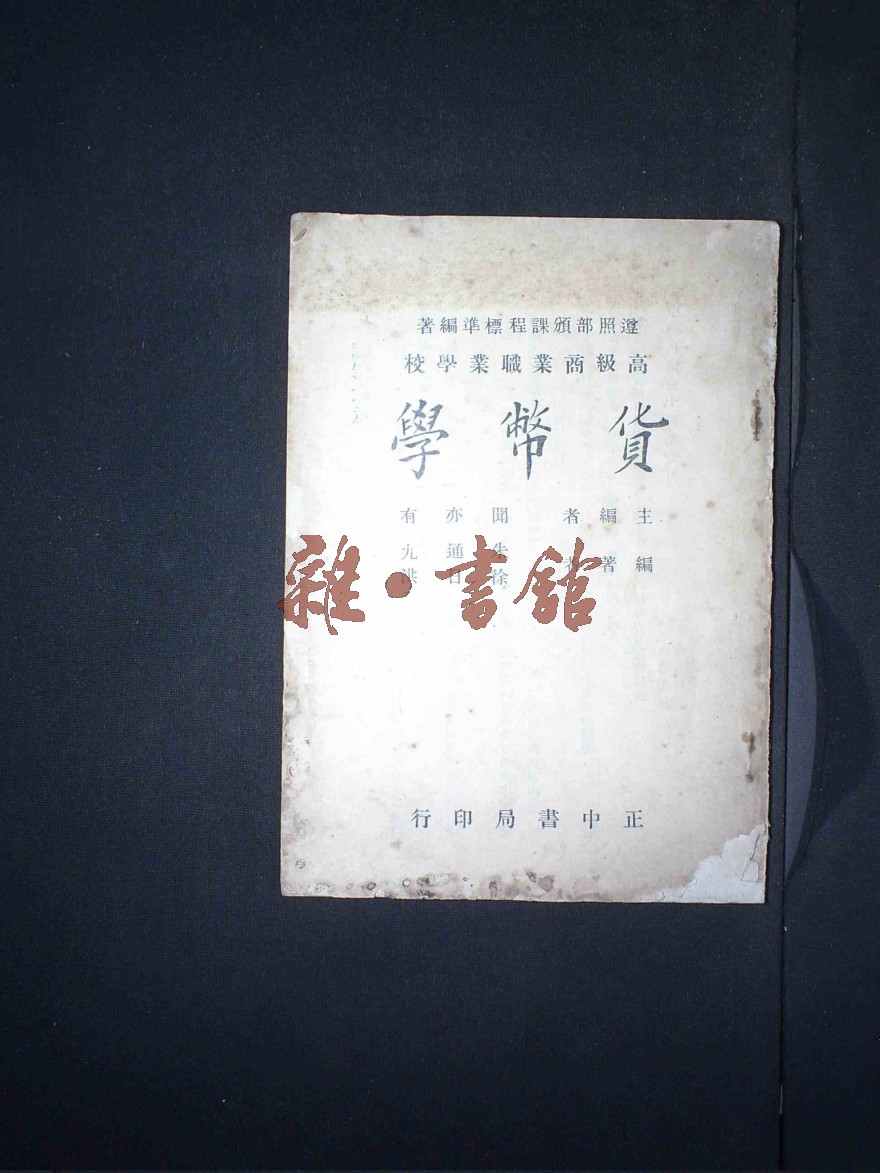 遵照部頒課程標準編著
高級商業職業學校
貨幣學
主編者 聞亦有
編著者 朱通九
徐日洪
雜·書館
正中書局印行